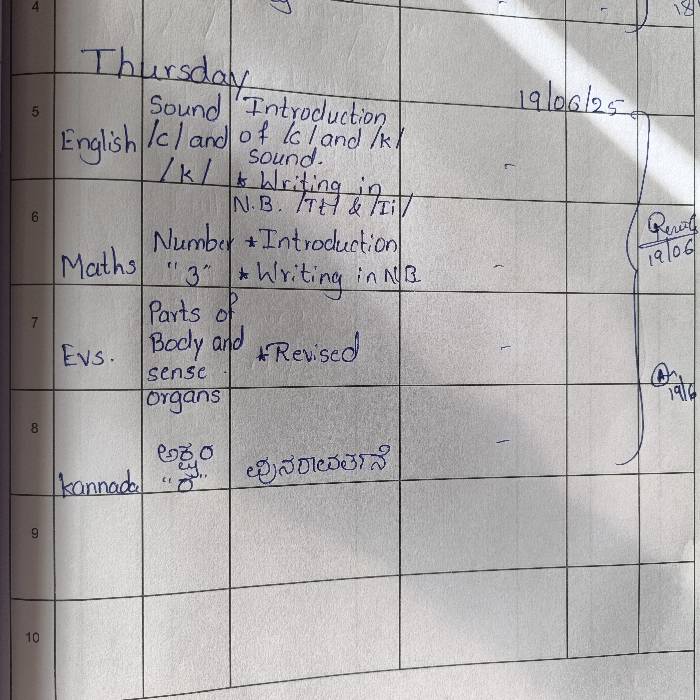 4
18
Thursday
19/06/25
5
English
Sound
/c/ and
/k/
Introduction
of /c/ and /k/
sound.
* Writing in
N.B. /Tt/ & /Ii/
-
6
Maths
Number
"3"
* Introduction
* Writing in N.B.
-
19/06
7
Evs.
Parts of
Body and
sense
organs
* Revised
-
19/6
8
kannada
ಅಕ್ಷರ
ಪುನರಾವರ್ತನೆ
-
9
10